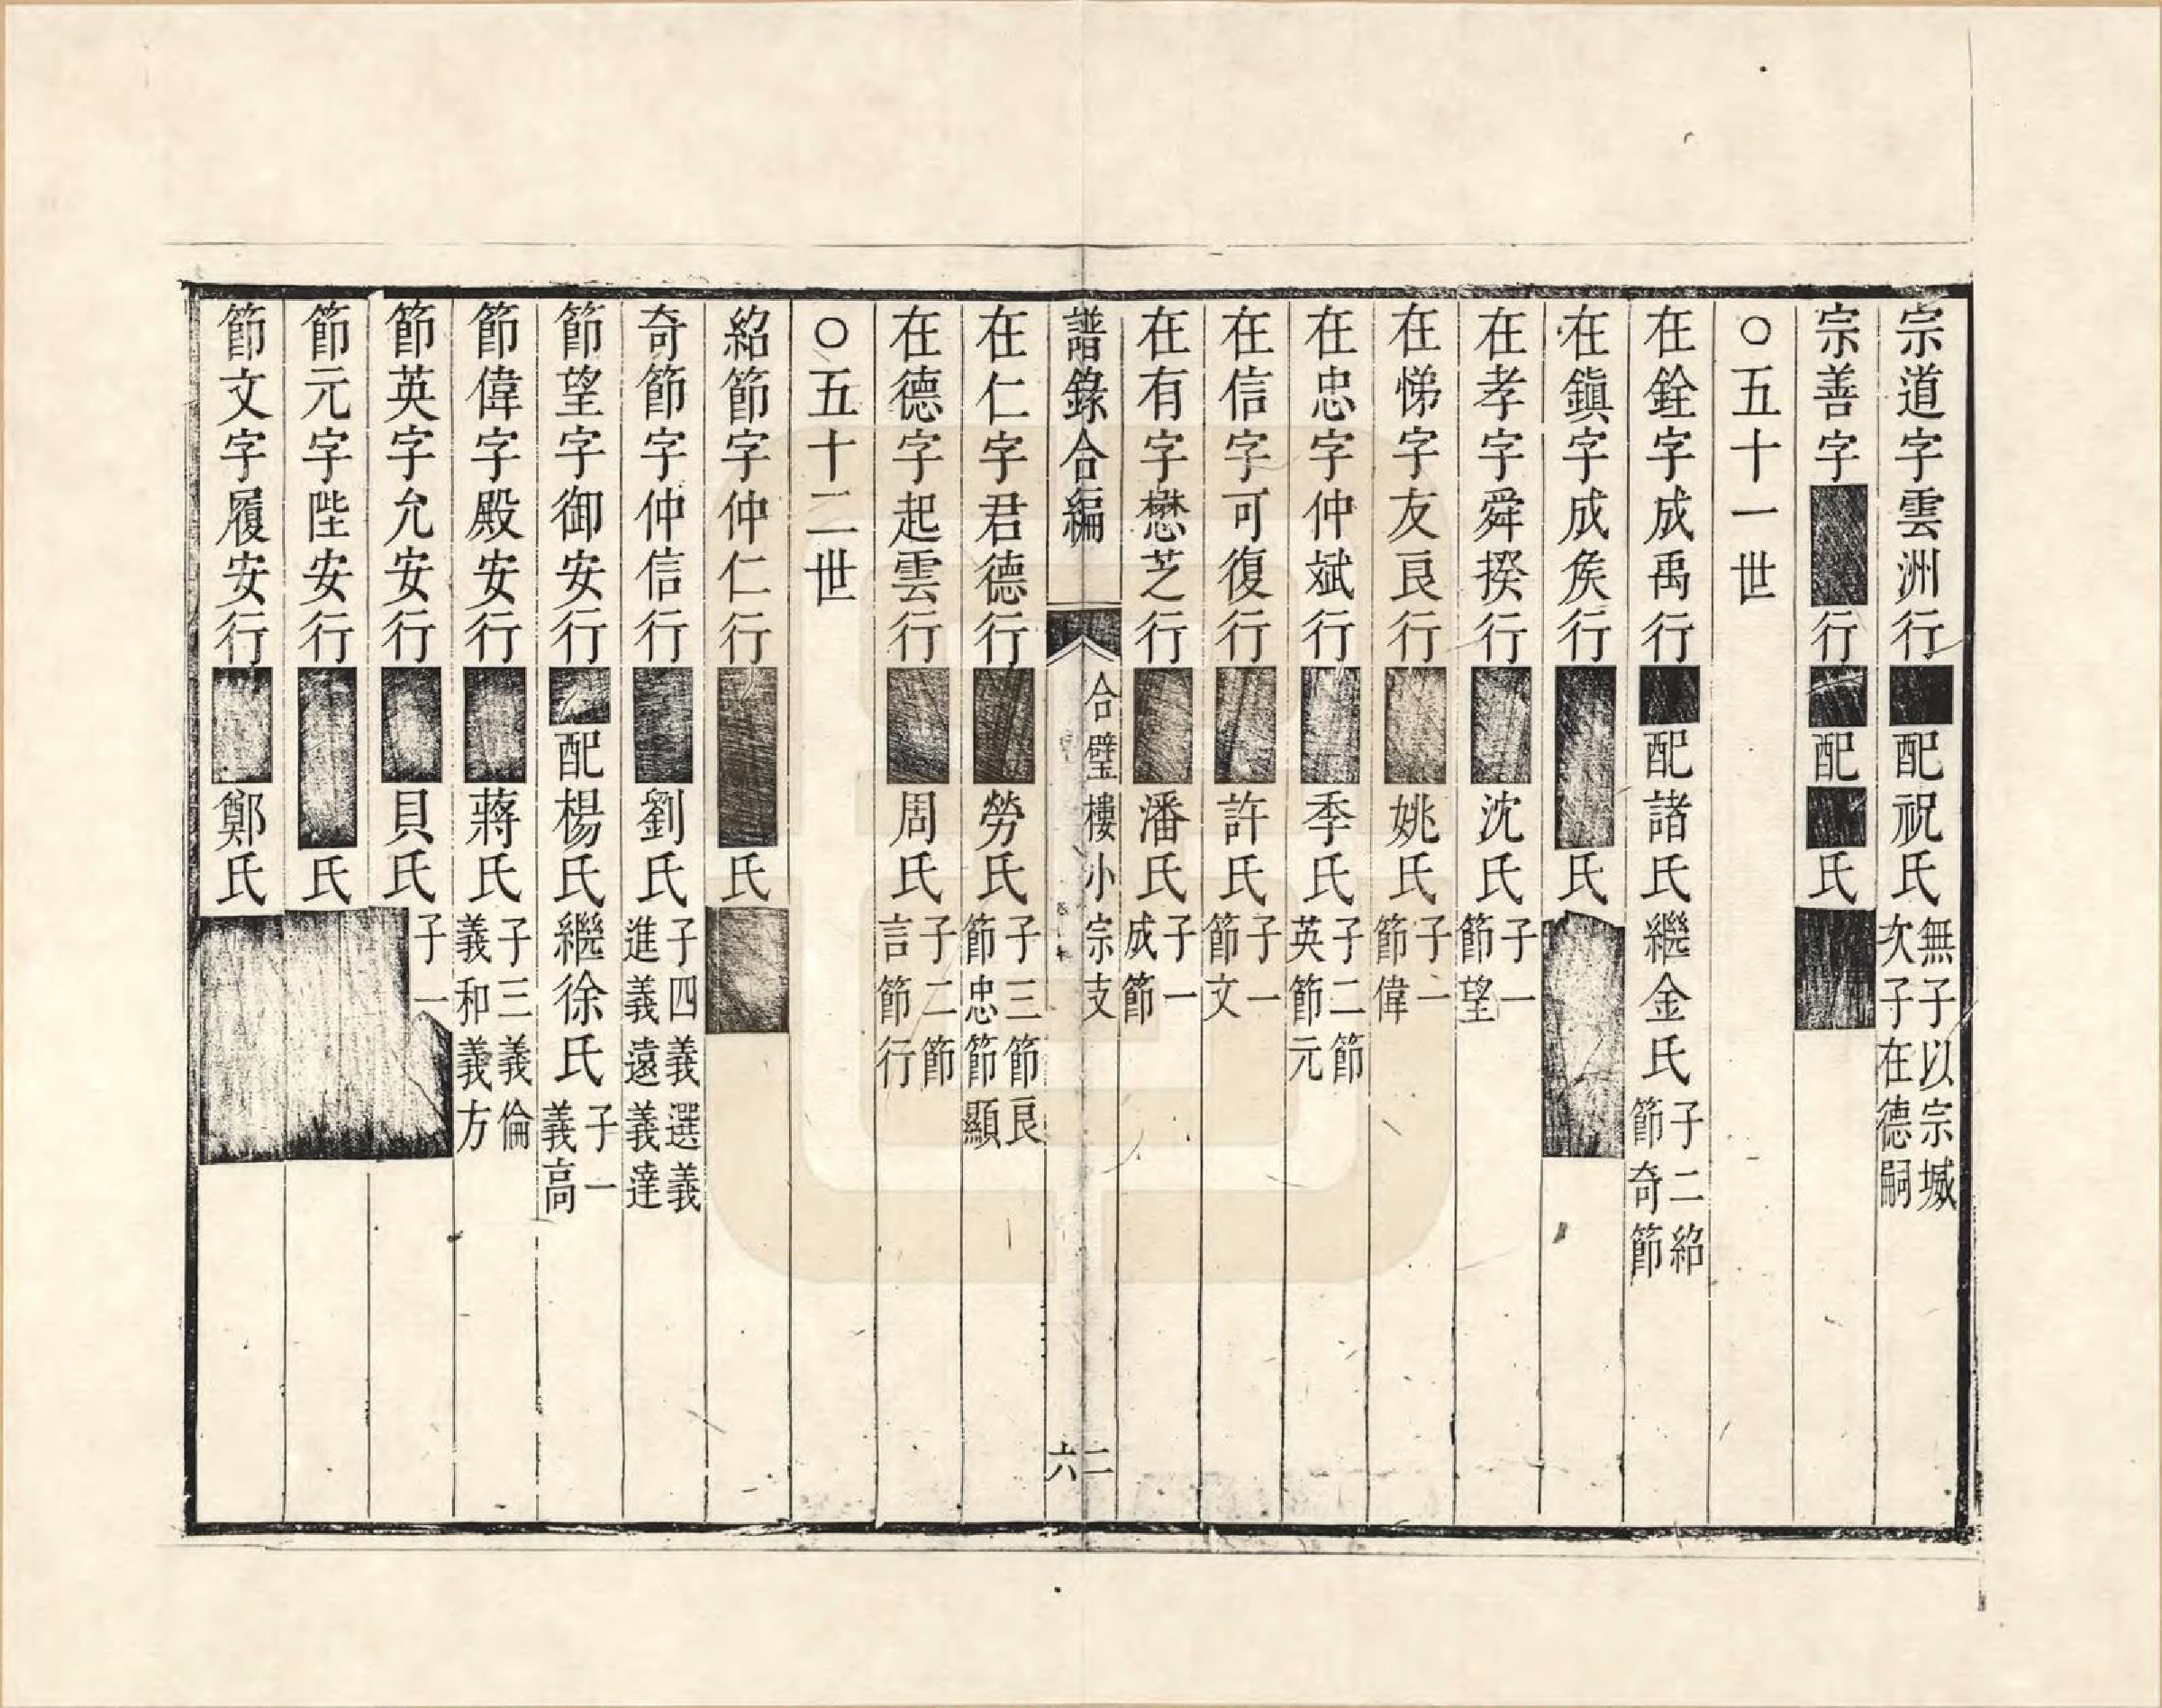 宗道字雲洲行■配祝氏無子以宗城次子在德嗣
宗善字■行■配■氏■
○五十一世
在銓字成禹行■配諸氏繼金氏子二紹節奇節
在鎭字成矦行■氏■
在孝字舜揆行■沈氏子一節望
在悌字友良行■姚氏子一節偉
在忠字仲斌行■季氏子二節英節元
在信字可復行■許氏子一節文
在有字懋芝行■潘氏子一成節
譜錄合編
合璧樓小宗支
二六
在仁字君德行■勞氏子三節良節忠節顯
在德字起雲行■周氏子二節言節行
○五十二世
紹節字仲仁行■氏■
奇節字仲信行■劉氏子四義選義進義遠義達
節望字御安行■配楊氏繼徐氏子一義高
節偉字殿安行■蔣氏子三義倫義和義方
節英字允安行■貝氏子一■
節元字陛安行■氏■
節文字履安行■鄭氏■